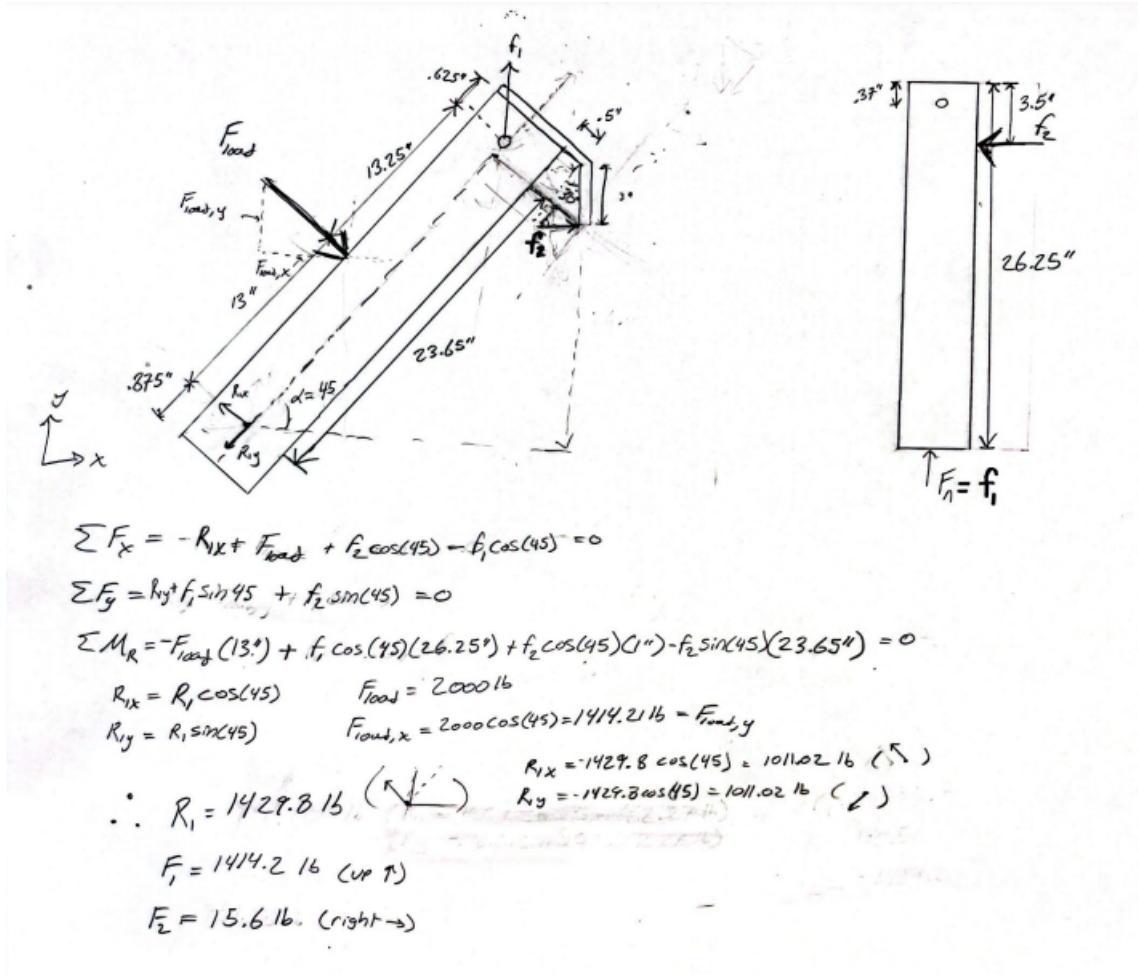 f₁
.625"
.5"
13.25"
F_load
F_load,y
F_load,x
3"
30°
f₂
13"
23.65"
.875"
R₁x
α=45
R₁y
y
x
.37"
3.5"
f₂
26.25"
F₁=f₁
ΣFₓ = -R₁x + F_load + f₂cos(45) - f₁cos(45) = 0
ΣFy = R₁y + f₁sin45 + f₂sin(45) = 0
ΣM_R = -F_load(13") + f₁cos(45)(26.25") + f₂cos(45)(1") - f₂sin(45)(23.65") = 0
R₁x = R₁cos(45)
F_load = 2000lb
R₁y = R₁sin(45)
F_load,x = 2000cos(45) = 1414.21lb = F_load,y
R₁x = -1429.8 cos(45) = 1011.02 lb (↖)
R₁y = -1429.8cos(45) = 1011.02 lb (↙)
∴ R₁ = 1429.8 lb
F₁ = 1414.2 lb (up ↑)
F₂ = 15.6 lb. (right →)